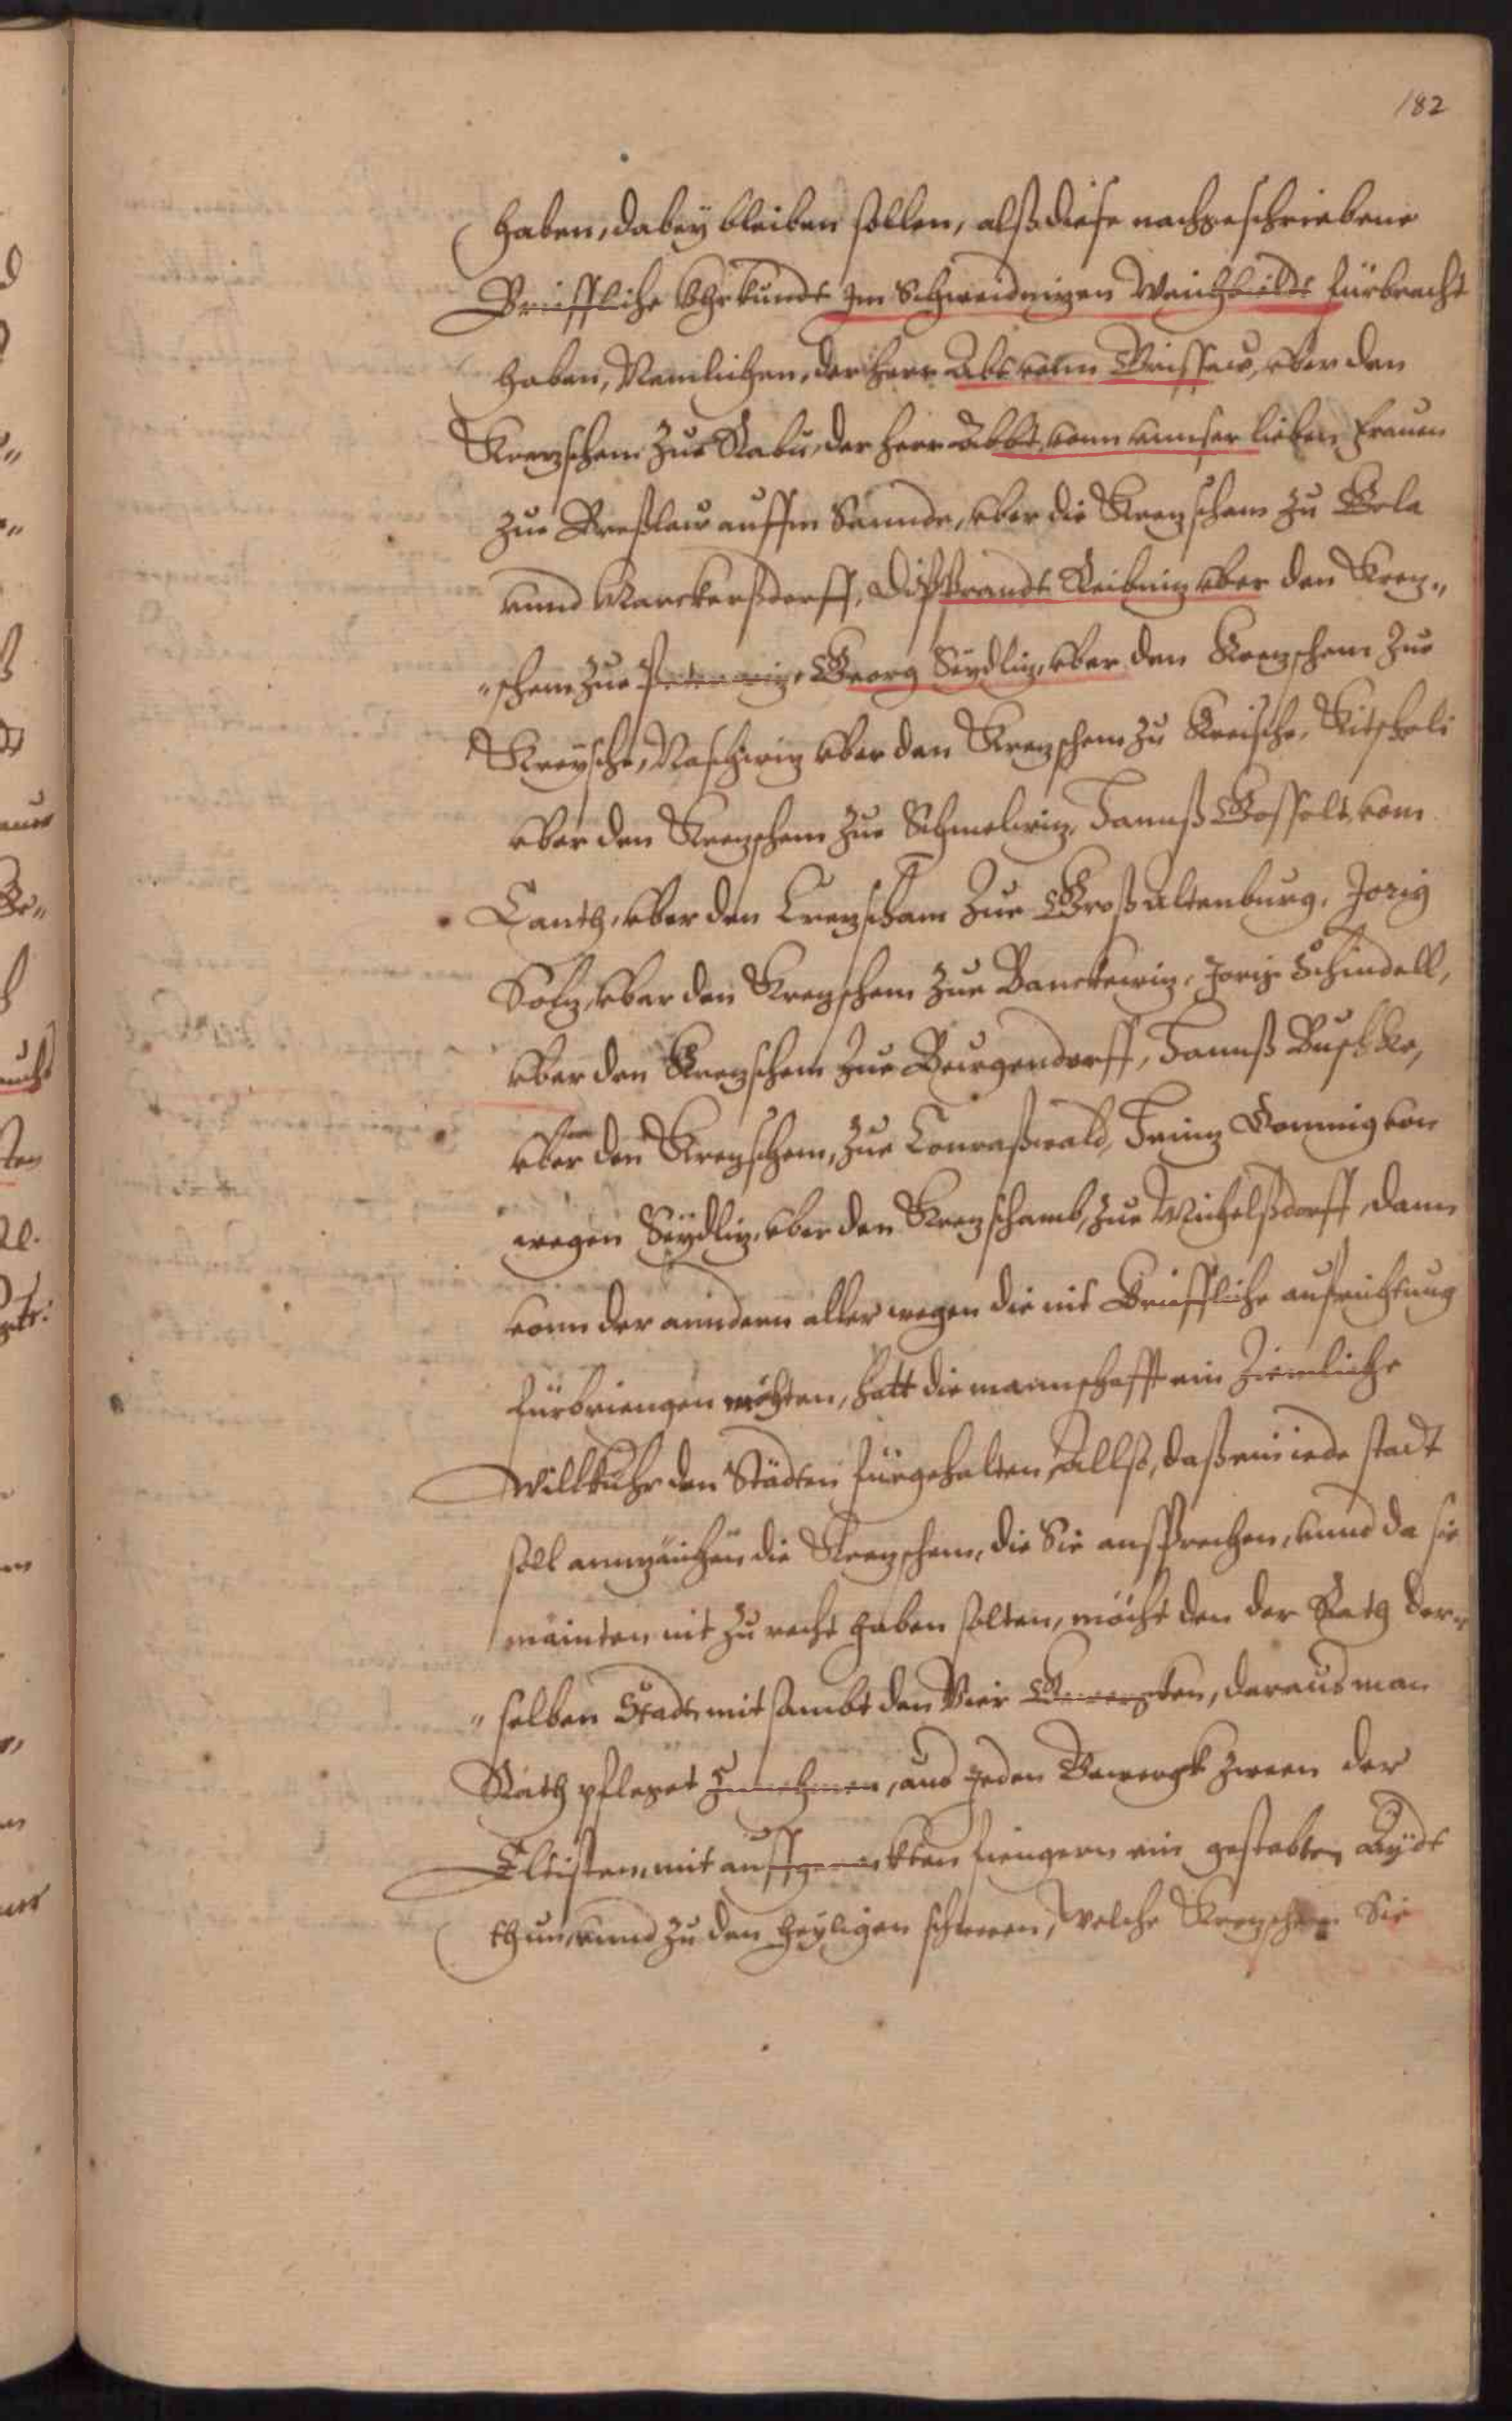 182
haben, dabey bleiben sollen, alß diese nachgeschriebene
Briefflliche Vhrkundt Im Schweidnizen Weichbildt fürbracht
haben, Nemlichen, der Herr Abt vonn Grissaw, vber den
Krezschem zur Rabu, der Herr Abbt, vonn vnnser lieben Frauen
zur Breßlaw auffm Sannde, vber die Krezscham zu Gola
vnnd Marckerßdorff, Dipprandt Reibniz vber den Krez„
„schem zur Peterwiz, Georg Seydliz, vber den Krezschem zur
Kreysche, Naschwiz vber den Krezschem zu Kreische,
vber den Krezschem zur Schmelwiz, Hannß Gossolt vom
Canth, vber den Crezscham zur Groß altenburg, Jorig
Solz, vber den Krezschem zur Banckwiz, Jorig Schindell,
vber den Krezschem zur Burgendorff, Hannß Buschke,
vber den Krezschem, zur Conraßwald, Heinz Dommig von
wegen Seydliz, vber den Krezschamb, zur Michelßdorff, dann
vonn der anndern aller wegen die nit Brieffliche aufrichtung
fürbriengen möchten, hatt die mannschafft ein Ziemliche
Willkuhr den Städten fürgehalten, Allß, daß ein iede stadt
soll annzaichen die Krezschem, die Sie ansprechen, vnnd da sie
mainten nit zu recht haben solten, möcht den der Rath der„
„selben Stadt mit sambt den Vier Gewergken, daraus man
Rath pfleget zunehmen, aus Jeden Gewergk zween der
Eltisten, mit auffgerekten fiengern ein gestabten Aydt
thun, vnnd zu den heyligen schweren, welche Krezschem Sie